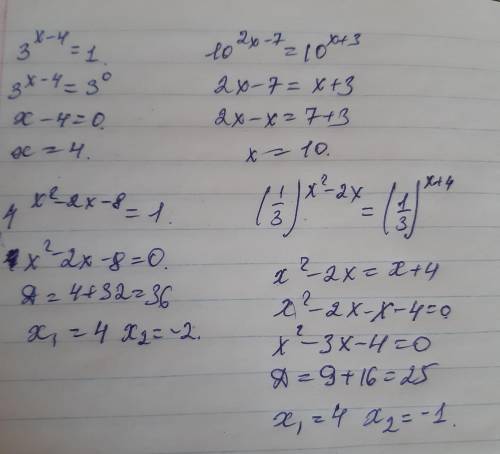 3^{x-4} = 1.
3^{x-4} = 3^0
x - 4 = 0.
x = 4.
10^{2x-7} = 10^{x+3}
2x - 7 = x + 3
2x - x = 7 + 3
x = 10.
4^{x^2-2x-8} = 1.
x^2 - 2x - 8 = 0.
D = 4 + 32 = 36
x_1 = 4 x_2 = -2.
(1/3)^{x^2-2x} = (1/3)^{x+4}
x^2 - 2x = x + 4
x^2 - 2x - x - 4 = 0
x^2 - 3x - 4 = 0
D = 9 + 16 = 25
x_1 = 4 x_2 = -1.